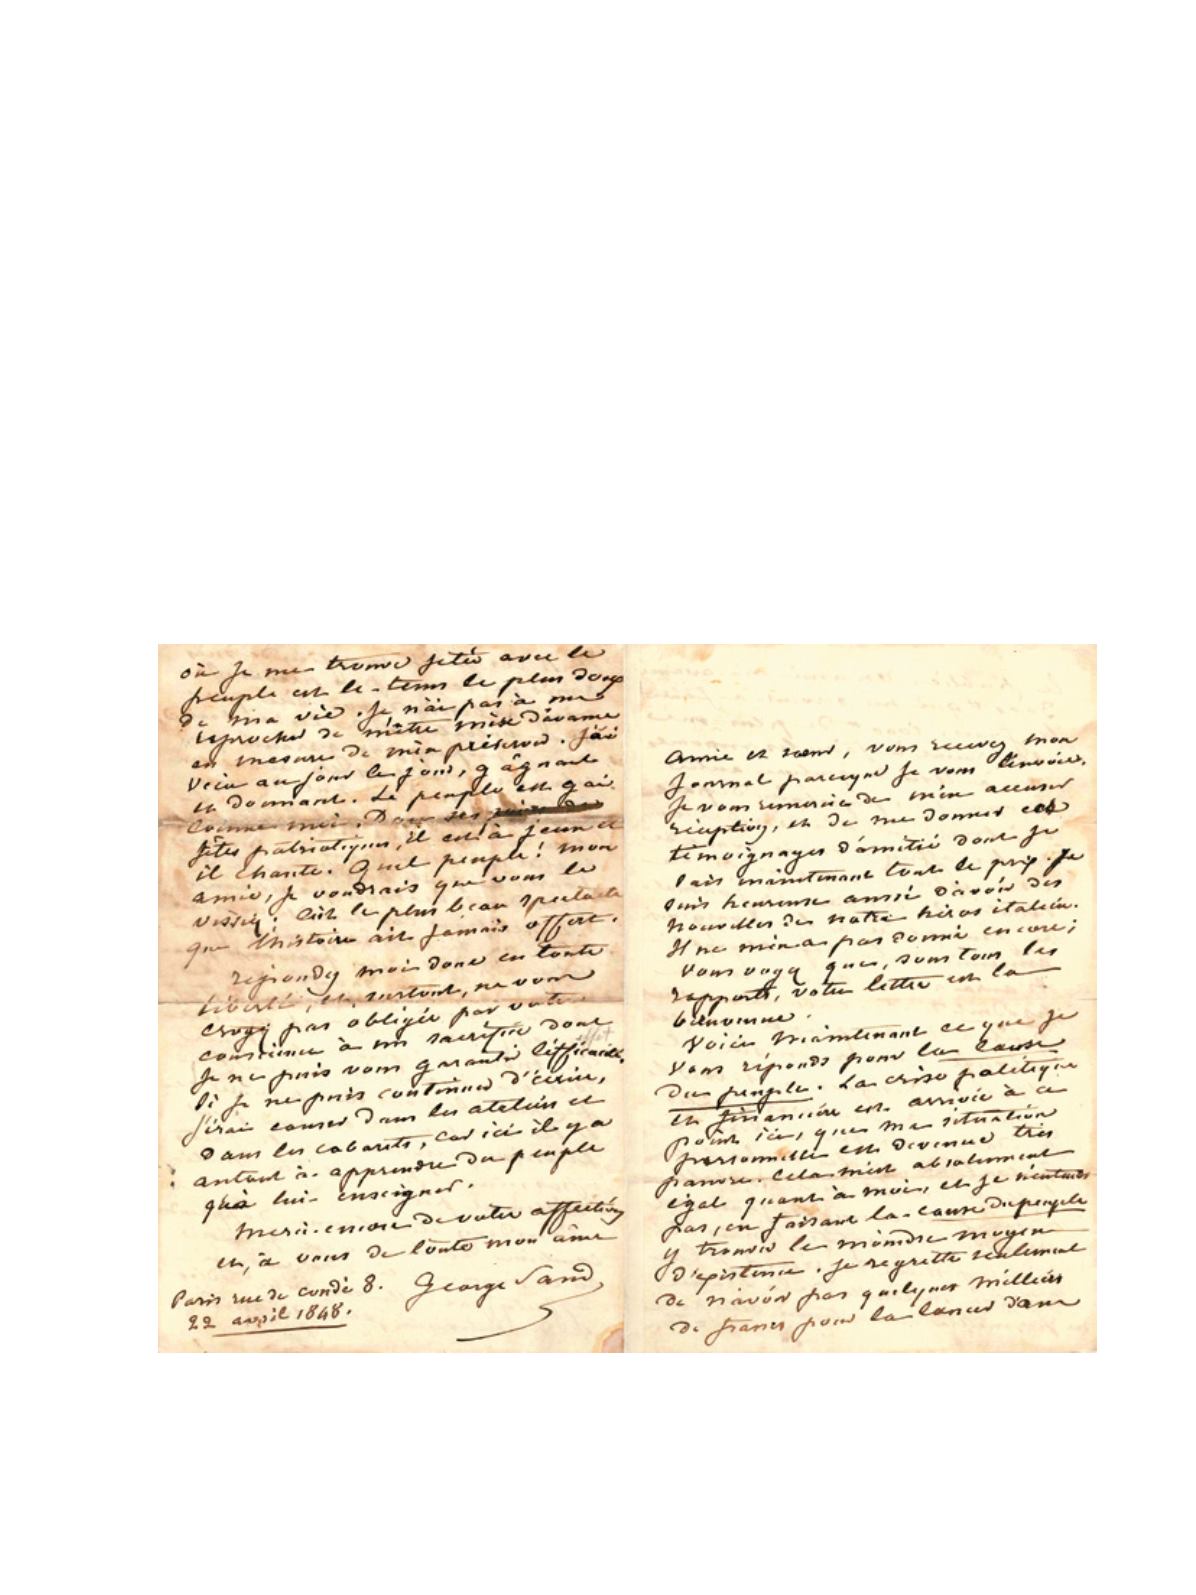 où je me trouve jetée avec le
peuple est le tems le plus doux
de ma vie. Je n'ai pas à me
reprocher de m'être mise d'avance
en mesure de m'en préserver. J'ai
vécu au jour le jour, gâgnant
et donnant. Le peuple est gai
comme moi. Dans ses
fêtes patriotiques, il est à jeun et
il chante. Quel peuple! mon
amie, je voudrais que vous le
vissiez! C'est le plus beau spectacle
que l'histoire ait jamais offert.
repondez moi donc en toute
liberté, et, surtout, ne vous
croyez pas obligée par votre
conscience à un sacrifice dont
je ne puis vous garantir l'efficacité.
Si je ne puis continuer d'écrire,
j'irai causer dans les ateliers et
dans les cabarets, car ici il y a
autant à apprendre du peuple
qu'à lui enseigner.
Merci encore de votre affection
et, à vous de toute mon âme
George Sand
Paris rue de condé 8.
22 avril 1848.
Amie et sœur, vous recevez mon
journal parceque je vous l'envoie.
Je vous remercie de m'en accuser
réception, et de me donner ces
témoignages d'amitié dont je
sais maintenant tout le prix. Je
suis heureuse aussi d'avoir des
nouvelles de notre héros italien.
Il ne m'en a pas donné encore;
vous voyez que, sous tous les
rapports, votre lettre est la
bienvenue.
Voici maintenant ce que je
vous réponds pour la cause
du peuple. La crise politique
et financière est arrivée à ce
point ici, que ma situation
personnelle est devenue très
pauvre. Cela m'est absolument
égal quant à moi, et je n'entends
pas, en faisant la cause du peuple
y trouver le moindre moyen
d'existence. Je regrette seulement
de n'avoir pas quelques milliers
de francs pour la lancer d'une